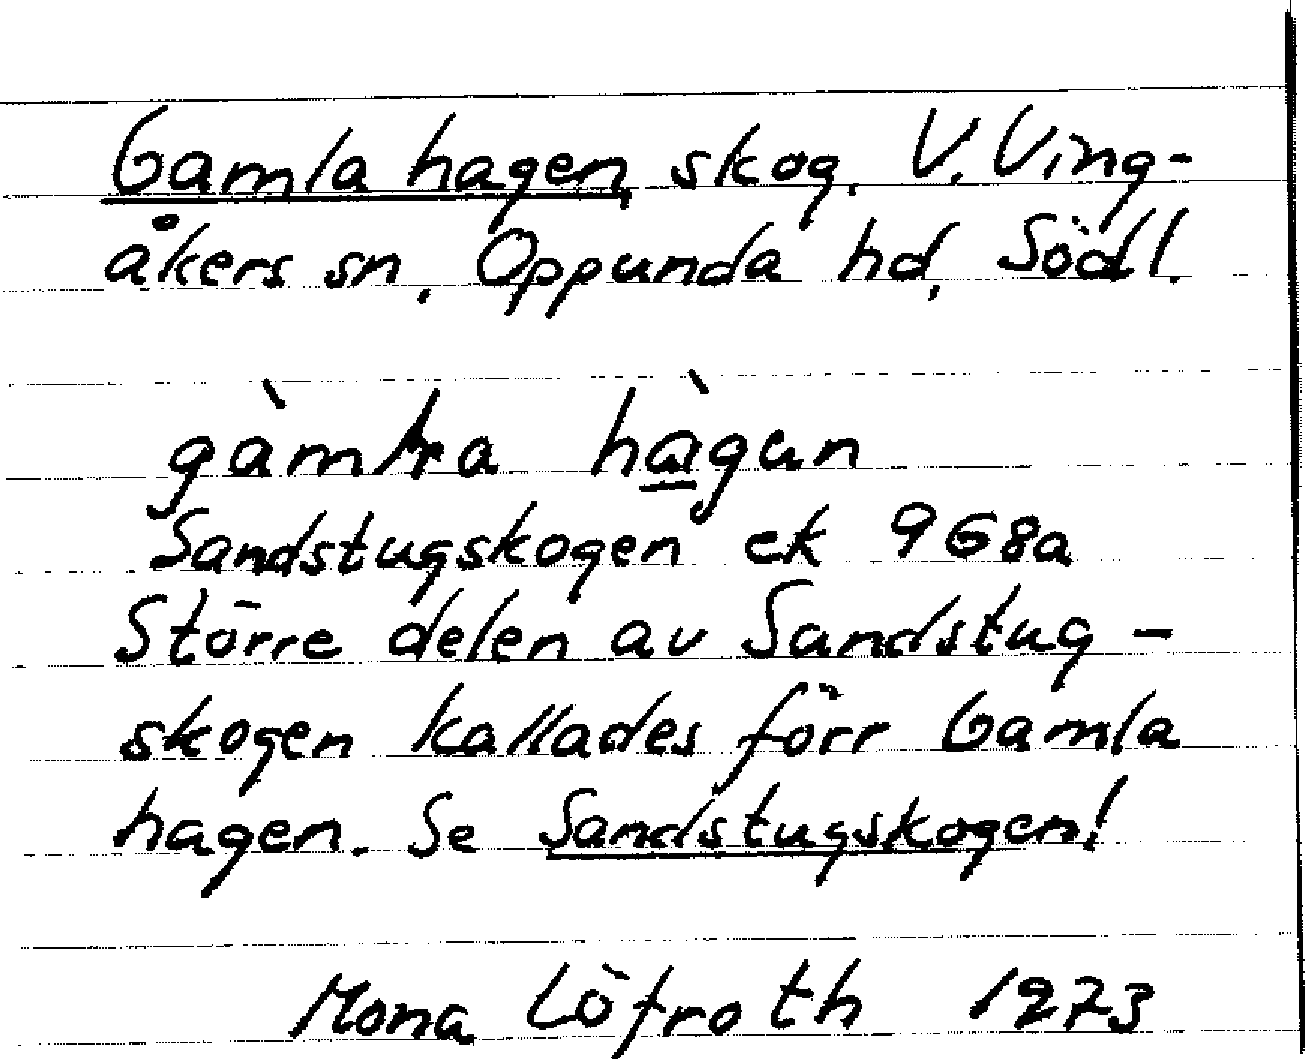 Gamla hagen, skog. V. Ving-
åkers sn. Oppunda hd, Södl.
hàgan
Sandstugskogen ek 968a
Större delen av Sandstug-
skogen kallades förr Gamla
hagen. Se Sandstugskogen!
Mona Löfroth 1973